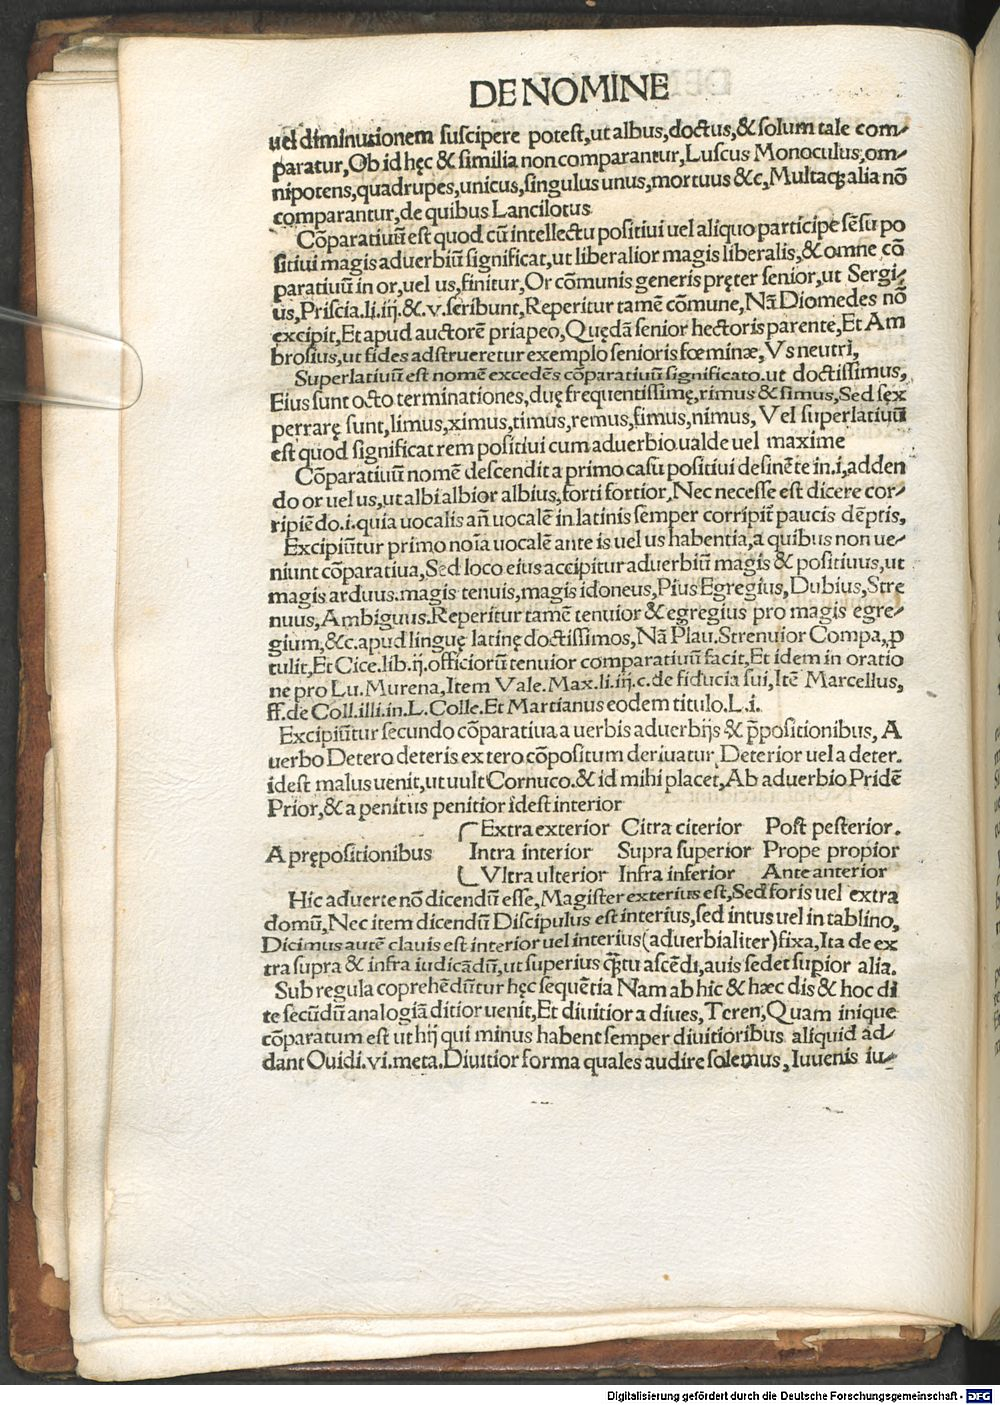 DE NOMINE
uel diminutionem suscipere potest, ut albus, doctus, & solum tale com⸗
paratur, Ob id hęc & similia non comparantur, Luscus Monoculus, om⸗
nipotens, quadrupes, unicus, singulus unus, mortuus &c, Multaqꝫ alia nō
comparantur, de quibus Lancilotus
Cōparatiuū est quod cū intellectu positiui uel aliquo participe sēsu po
sitiui magis aduerbiū significat, ut liberalior magis liberalis, & omne cō
paratiuū in or, uel us, finitur, Or cōmunis generis pręter senior, ut Sergi⸗
us, Priscia. li. iij. &. v. scribunt, Reperitur tamē cōmune, Nā Diomedes nō
excipit, Et apud auctorē priapeo, Quędā senior hectoris parente, Et Am
brosius, ut fides adstrueretur exemplo senioris fœminæ, Vs neutri,
Superlatiuū est nomē excedēs cōparatiuū significato. ut doctissimus,
Eius sunt octo terminationes, duę frequentissimę, rimus & simus, Sed sęx
perrarę sunt, limus, ximus, timus, remus, fimus, nimus, Vel superlatiuū
est quod significat rem positiui cum aduerbio ualde uel maxime
Cōparatiuū nomē descendit a primo casu positiui desinēte in. i, adden
do or uel us, ut albi albior albius, forti fortior, Nec necesse est dicere cor⸗
ripiēdo. i. quia uocalis an̄ uocalē in latinis semper corripit̄ paucis dēptis,
Excipiūtur primo noīa uocalē ante is uel us habentia, a quibus non ue⸗
niunt cōparatiua, Sed loco eius accipitur aduerbiū magis & positiuus, ut
magis arduus. magis tenuis, magis idoneus, Pius Egregius, Dubius, Stre
nuus, Ambiguus. Reperitur tamē tenuior & egregius pro magis egre⸗
gium, &c. apud linguę latinę doctissimos, Nā Plau. Strenuior Compa,, ꝓ
tulit, Et Cice. lib. ij. officiorū tenuior comparatiuū facit, Et idem in oratio
ne pro Lu. Murena, Item Vale. Max. li. iij. c. de fiducia sui, Itē Marcellus,
ff. de Coll. illi. in. L. Colle. Et Martianus eodem titulo. L. i.
Excipiūtur secundo cōparatiua a uerbis aduerbijs & p̄positionibus, A
uerbo Detero deteris ex tero cōpositum deriuatur Deterior uel a deter.
idest malus uenit, ut uult Cornuco. & id mihi placet, Ab aduerbio Pridē
Prior, & a penitus penitior idest interior
Extra exterior Citra citerior Post pesterior.
A prępositionibus Intra interior Supra superior Prope propior
Vltra ulterior Infra inferior Ante anterior
Hic aduerte nō dicendū esse, Magister exterius est, Sed foris uel extra
domū, Nec item dicendū Discipulus est interius, sed intus uel in tablino,
Dicimus autē clauis est interior uel interius (aduerbialiter) fixa, Ita de ex
tra supra & infra iudicādū, ut superius tu ascēdi, auis sedet supior alia.
Sub regula coprehēdūtur hęc sequētia Nam ab hic & hæc dis & hoc di
te secūdū analogiā ditior uenit, Et diuitior a diues, Teren, Quam inique
cōparatum est ut hij qui minus habent semper diuitioribus aliquid ad⸗
dant Ouidi. vi. meta. Diuitior forma quales audire solemus, Iuuenis iu⸗
Digitalisierung gefördert durch die Deutsche Forschungsgemeinschaft - DFG